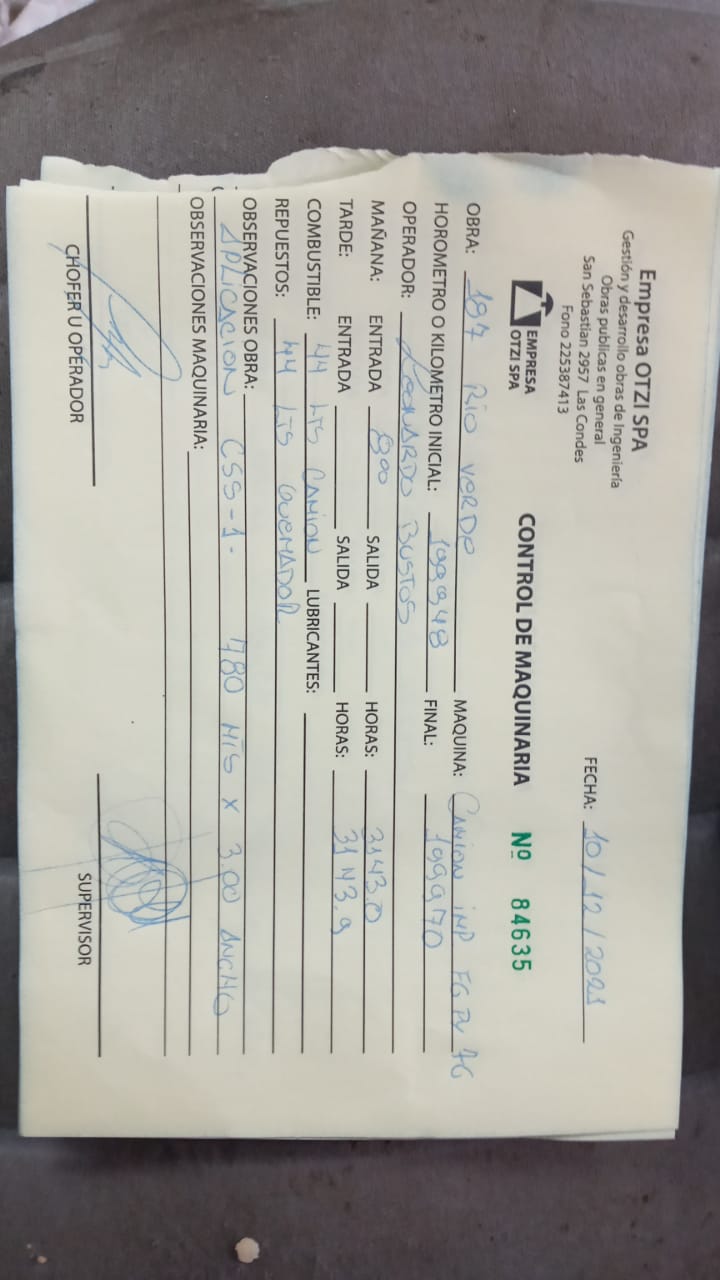 Empresa OTZI SPA
Gestión y desarrollo obras de Ingeniería
Obras publicas en general
San Sebastian 2957 Las Condes
Fono 225387413
FECHA: 10/12/2021
EMPRESA
OTZI SPA
CONTROL DE MAQUINARIA Nº 84635
OBRA: 187 Rio Verde MAQUINA: Camion imp FGPV 76
HOROMETRO O KILOMETRO INICIAL: 199948 FINAL: 199970
OPERADOR: Leonardo Bustos
MAÑANA: ENTRADA 8:00 SALIDA HORAS: 3143.0
TARDE: ENTRADA SALIDA HORAS: 3143.9
COMBUSTIBLE: 44 LTS CAMION LUBRICANTES:
REPUESTOS: 44 LTS QUEMADOR
OBSERVACIONES OBRA:
APLICACION CSS-1- 780 MTS X 3.00 ANCHO
OBSERVACIONES MAQUINARIA:
CHOFER U OPERADOR
SUPERVISOR